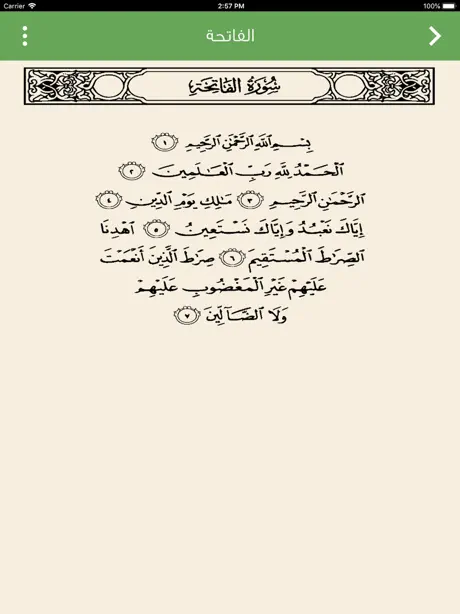 Carrier 2:57 PM 100%
الفاتحة
سُورَةُ الفَاتِحَةِ
بِسْمِ اللَّهِ الرَّحْمَٰنِ الرَّحِيمِ ١
الْحَمْدُ لِلَّهِ رَبِّ الْعَالَمِينَ ٢
الرَّحْمَٰنِ الرَّحِيمِ ٣ مَالِكِ يَوْمِ الدِّينِ ٤
إِيَّاكَ نَعْبُدُ وَإِيَّاكَ نَسْتَعِينُ ٥ اهْدِنَا
الصِّرَاطَ الْمُسْتَقِيمَ ٦ صِرَاطَ الَّذِينَ أَنْعَمْتَ
عَلَيْهِمْ غَيْرِ الْمَغْضُوبِ عَلَيْهِمْ
وَلَا الضَّآلِّينَ ٧